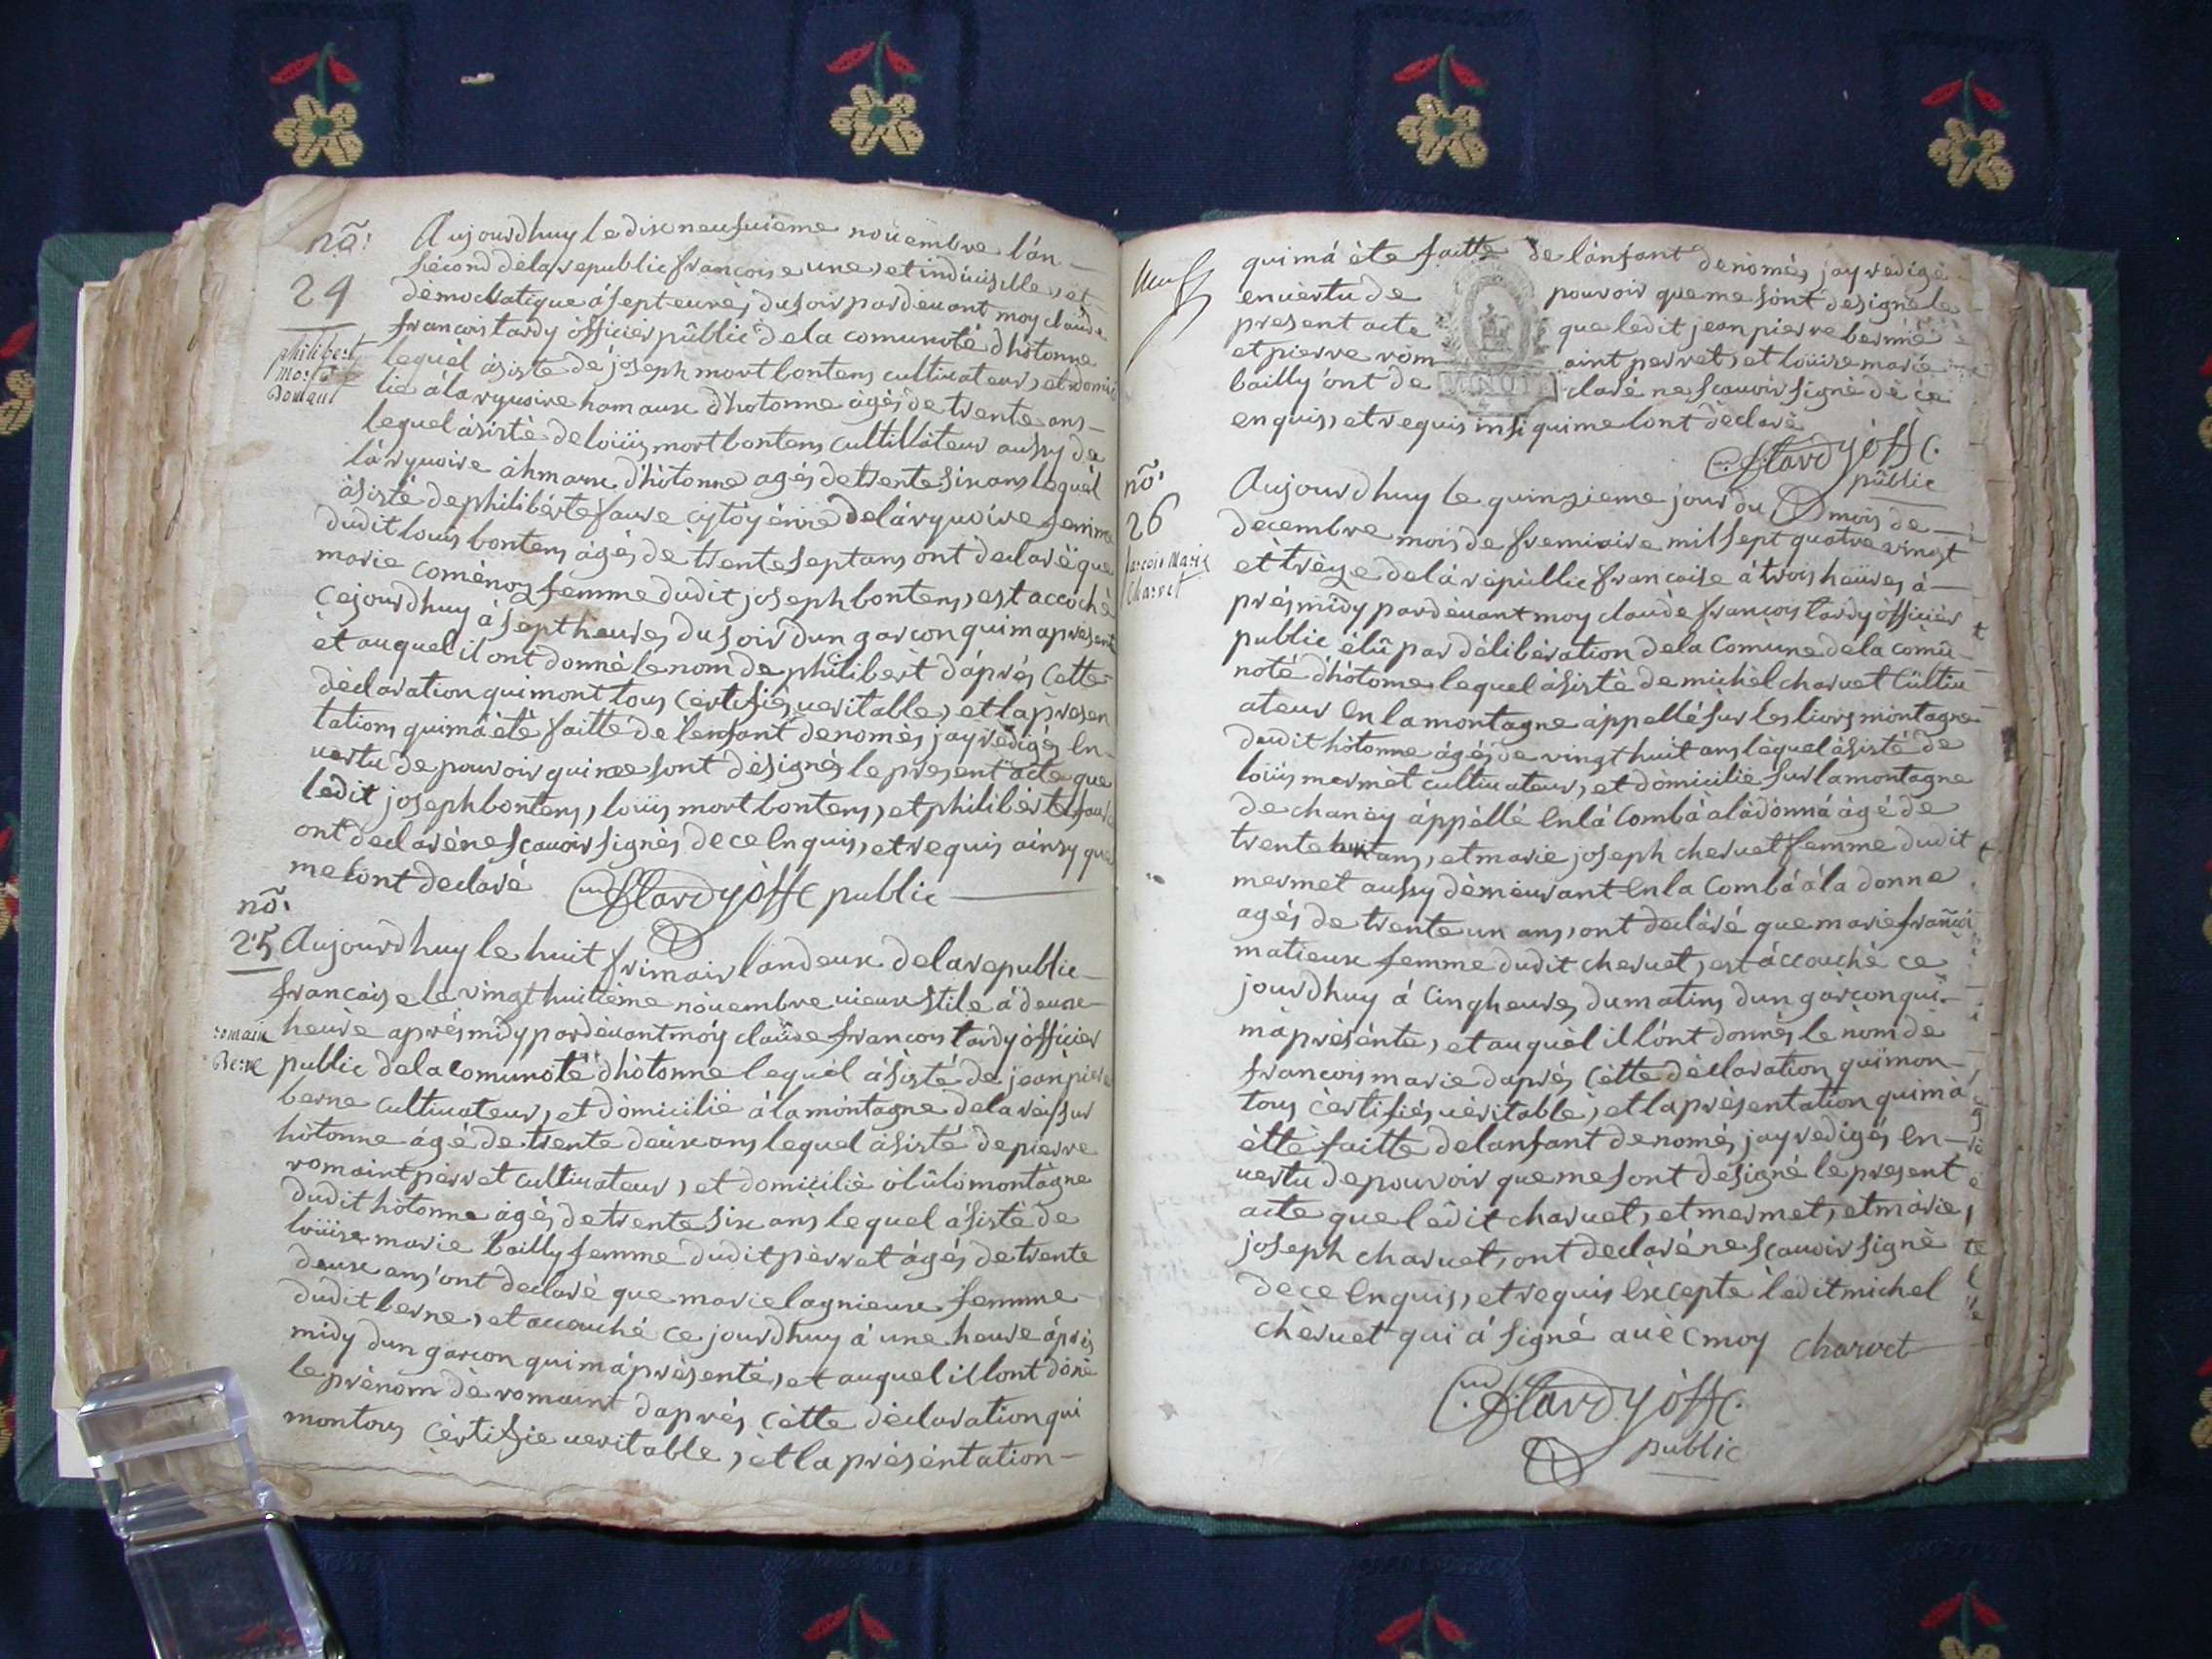 nō:
24
philibert
mort
Bontan
Aujourdhuy le dix neufuieme noüembre lán
sécond déla republic francoise une, et indiuisible, et
démocratique á sept eures, du soir pardéuant moy claude
francois tardy officier públic de la comunoté d'hotonne
lequél ásisté dé joseph mort bontems cultiuateur, et domici
lié á la ryuoire hamaux d'hotonne àgés de trente ans
lequel ásisté de loüis mort bontems cultillateur aussy de
lá ryuoire àhmaux d'hotonne agés de trente six ans lequél
àsisté de philibérte faure cytoyénne de lá ryuoire femme
dudit louis bontems ágés de trente sept ans ont déclaré que
marie coménoz femme dudit joseph bontems, est accoché
cejourdhuy á sept heures du soir dun garcon qui má présenté
et auquel il ont donné le nom de philibért dáprés cette
déclaration quimont tous certifiés ueritable, et la présen
tations quimá été faitté de lénfant denomés, jay rédigés en
uertu de pouvoir qui me sont désignés le present acte que
ledit joseph bontems, loüis mort bontems, et philibérte faure
ont declaré ne scauoir signés de ce enquis, et requis ainsy que
me lont declaré Cf tardy offc public
nō.
25
romain
Berne
Aujourdhuy le huit frimair landeux de la republic
francoise le vingt huitième nouembre uieux stile á deux
heure aprés midy pardéuant móy claude francois tardy officier
public de la comunoté d'hòtonne lequél ásisté de jean pierre
berne cultiuateur, et domicilié á la montagne de la rèy sur
hòtonne ágé de trente deúx ans lequel ásisté de pierre
romaint pèrret cultiuateur, et domicilié òlûlò montàgne
dudit hòtonne ágés de trente six ans lequel ásisté de
loüise marie bailly femme dudit pèrrat ágés de trente
deux ans ont declaré que marie lagnieux femme
dudit berne, et accouché ce jourdhuy á une heure áprés
midy dun garcon quimá présenté, et auquel il lont doné
le prénom de romaint daprés cètte déclaration qui
montous cèrtifie ueritable, èt la présentation
neuf
quimá éte faitte de lánfant denomés, jay redigé
en uèrtu de pouvoir que me sont designé le
present acte que ledit jean pierre berne
et pierre rom aint perret, et loüise marie
bailly ont de claré ne scauoir signé dé ce
enquis, et requis insi quime lont déclaré
Cf tardy offc.
públic
nō.
26
francois Marie
Charvet
Aujourdhuy le quinzieme jour du mois de
decembre mois de fremiaire mil sept quatre vingt
et trèze de lá républic francaise á trois heüres á
prés midy pardéuant moy claude francois tardy officiér
public élû par délibération de la Comune de la comu
noté d'hòtonne lequel ásisté de michél charuet cültiu
ateur en la montagne áppellé sur les liors montagne
dudit hòtonne ágés de vingt huit ans lèquel ásisté de
loüis mermèt cultiuateur, et dòmicilié sur la montagne
de chanéy áppéllé en lá Combá á la donná ágé de
trente huit ans, et marie joseph cheruet femme dudit
mermet aussy démeurant en la Combá á la donne
agés de trente un ans, ont declaré que marie françoi
matieux femme dudit cheruet, est áccouché ce
jourdhuy á cinq heures du matins dun garçon qui
má présénte, et auquél il lónt donnés le nom dé
francois marie daprés cètte dèclaration qui mon
tous cèrtifiés uéritablè, et la présentation quimá
étté faitte de lanfant denomés, jay redigés en
uertu de pouvoir que me sont designé le present
acte que lèdit charuet, et mermet, et màrie
joseph charuet, ont declaré ne scauoir signè
de ce enquis, et requis éxcepté lèdit michel
chèruet qui á signé auèc moy charvet
Cf tardy offc.
public